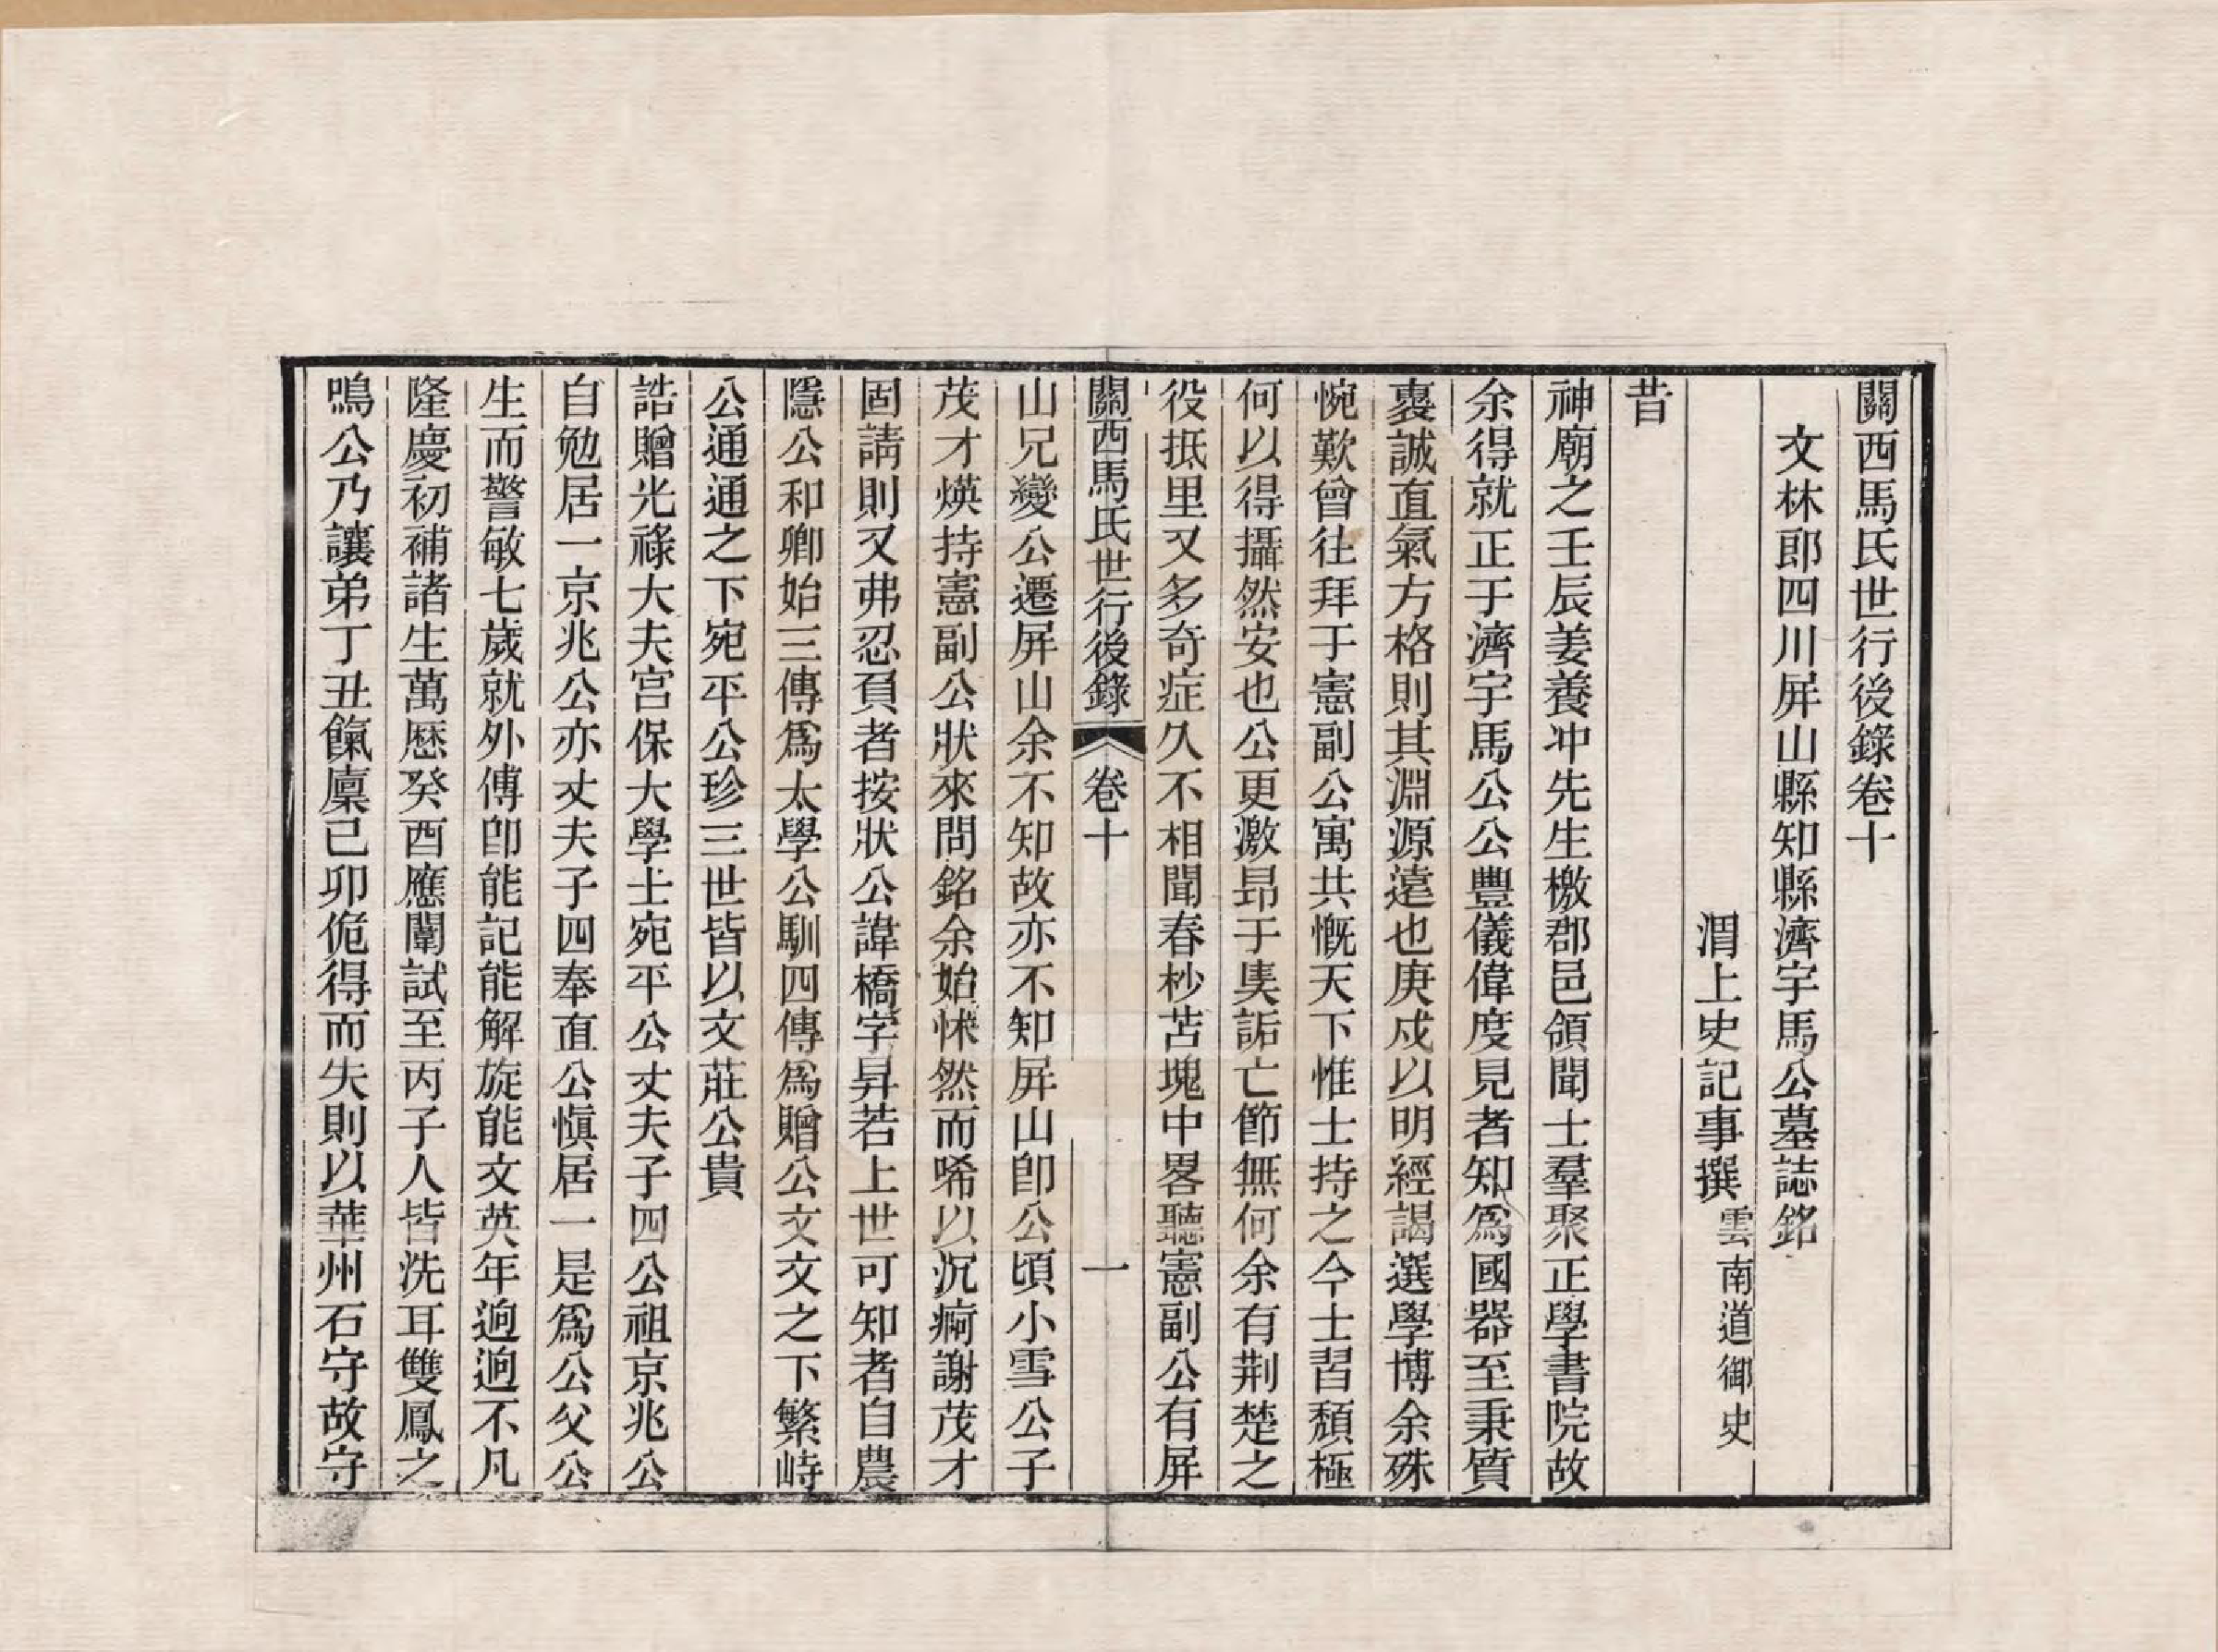 關西馬氏世行後錄卷十
文林郎四川屏山縣知縣濟宇馬公墓誌銘
渭上史記事撰雲南道御史
昔
神廟之壬辰姜養冲先生檄郡邑領聞士羣聚正學書院故
余得就正于濟宇馬公公豐儀偉度見者知爲國器至秉質
裏誠直氣方格則其淵源遠也庚戍以明經謁選學博余殊
惋歎曾往拜于憲副公寓共慨天下惟士持之今士習頹極
何以得攝然安也公更激昻于奊詬亡節無何余有荆楚之
役抵里又多奇症久不相聞春杪苫塊中畧聽憲副公有屏
關西馬氏世行後錄 卷十 一
山兄變公遷屏山余不知故亦不知屏山卽公頃小雪公子
茂才煐持憲副公狀來問銘余始怵然而唏以沉痾謝茂才
固請則又弗忍負者按狀公諱橋字昇若上世可知者自農
隱公和卿始三傳爲太學公馴四傳爲贈公文文之下繁峙
公通通之下宛平公珍三世皆以文莊公貴
誥贈光祿大夫宮保大學士宛平公丈夫子四公祖京兆公
自勉居一京兆公亦丈夫子四奉直公愼居一是爲公父公
生而警敏七歲就外傅卽能記能解旋能文英年逈逈不凡
隆慶初補諸生萬歷癸酉應闈試至丙子人皆洗耳雙鳳之
鳴公乃讓弟丁丑餼廩已卯佹得而失則以華州石守故守